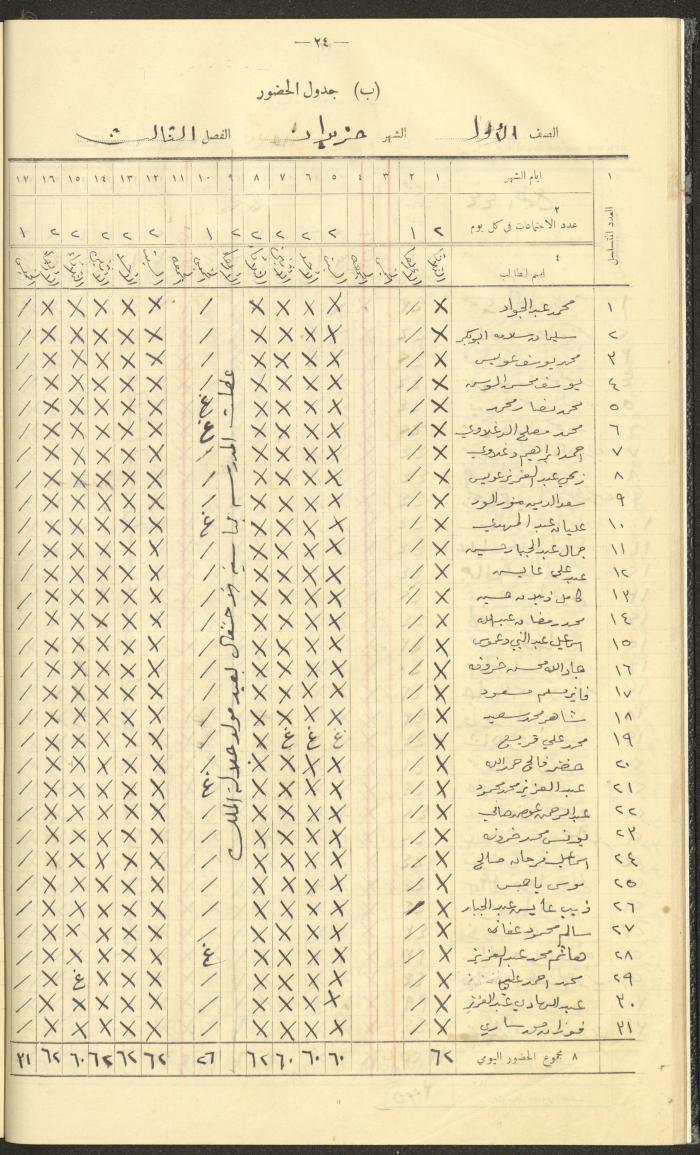 — ٢٤ —
(ب) جدول الحضور
الصف الأول الشهر حزيران الفصل الثالث
١ ايام الشهر ١ ٢ ٣ ٤ ٥ ٦ ٧ ٨ ٩ ١٠ ١١ ١٢ ١٣ ١٤ ١٥ ١٦ ١٧
العدد المتسلسل
٢
عدد الاجتماعات في كل يوم ٢ ١ ٢ ٢ ٢ ٢ ٢ ١ ٢ ٢ ٢ ٢ ٢ ١
٤
اسم الطالب الثلاثاء الاربعاء الخميس الجمعة السبت الاحد الاثنين الثلاثاء الاربعاء الخميس الجمعة السبت الاحد الاثنين الثلاثاء الاربعاء الخميس
١ محمد عبد الجواد
٢ سليمان سلامه ابو بكر
٣ محمد يوسف عويس
٤ يوسف محسن
٥ محمد
٦ محمد مفلح الدغلاوي
٧ احمد ابراهيم دغلاوي
٨ عبد العزيز عويس
٩ سعد الدين
١٠ عليان عبد المهدي
١١ جمال عبد الجبار حسين
١٢ علي عايس
١٣ كامل ذيبان حسين
١٤ محمد رمضان عبد الله
١٥ اسماعيل عبد النبي دعوس
١٦ جاد الله محسن خروفه
١٧ فايز مسلم مسعود
١٨ شاهر محمد سعيد
١٩ محمد علي فريج
٢٠ خضر فالح حمد الله
٢١ عبد العزيز محمد محمود
٢٢ عبد الرحمن عوض صافي
٢٣ يونس محمد خروفه
٢٤ اسماعيل فرحان صالح
٢٥ موسى
٢٦ ذيب عايس عبد الجبار
٢٧ سالم محمود عفانه
٢٨ هاشم محمد عبد العزيز
٢٩ محمد احمد علي
٣٠ عبد الهادي عبد العزيز
٣١ فوزان
عطلت المدرسه بمناسبة الاحتفال بعيد مولد جلالة الملك
٨ مجموع الحضور اليومي ٦٢ ٦٠ ٦٠ ٦٠ ٦٢ ٢٦ ٦٢ ٦٢ ٦٢ ٦٠ ٦٢ ٣١